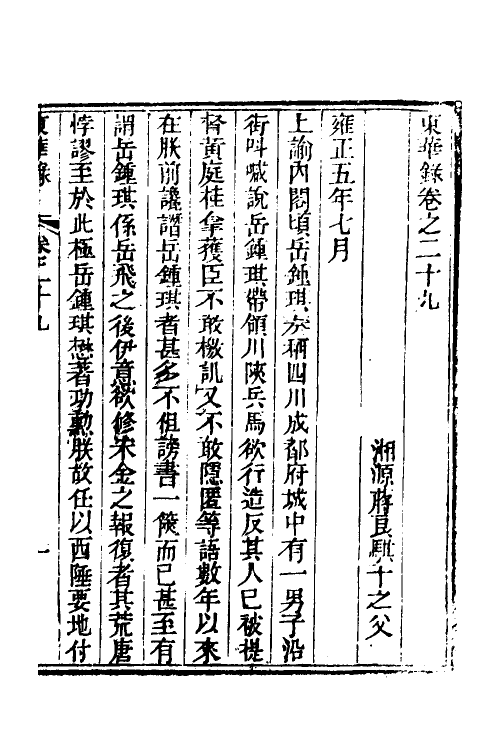 東華錄卷之二十九
湘源蔣良騏千之父
雍正五年七月
上諭內閣頃岳鍾琪奏稱四川成都府城中有一男子沿
街呌喊說岳鍾琪帶領川陝兵馬欲行造反其人已被提
督黃庭桂拿獲臣不敢根訊又不敢隱匿等語數年以來
在朕前讒譖岳鍾琪者甚多不但謗書一篋而已甚至有
謂岳鍾琪係岳飛之後伊意欲修宋金之報復者其荒唐
悖謬至於此極岳鍾琪懋著功勲朕故任以西陲要地付
東華錄 卷二十九 一